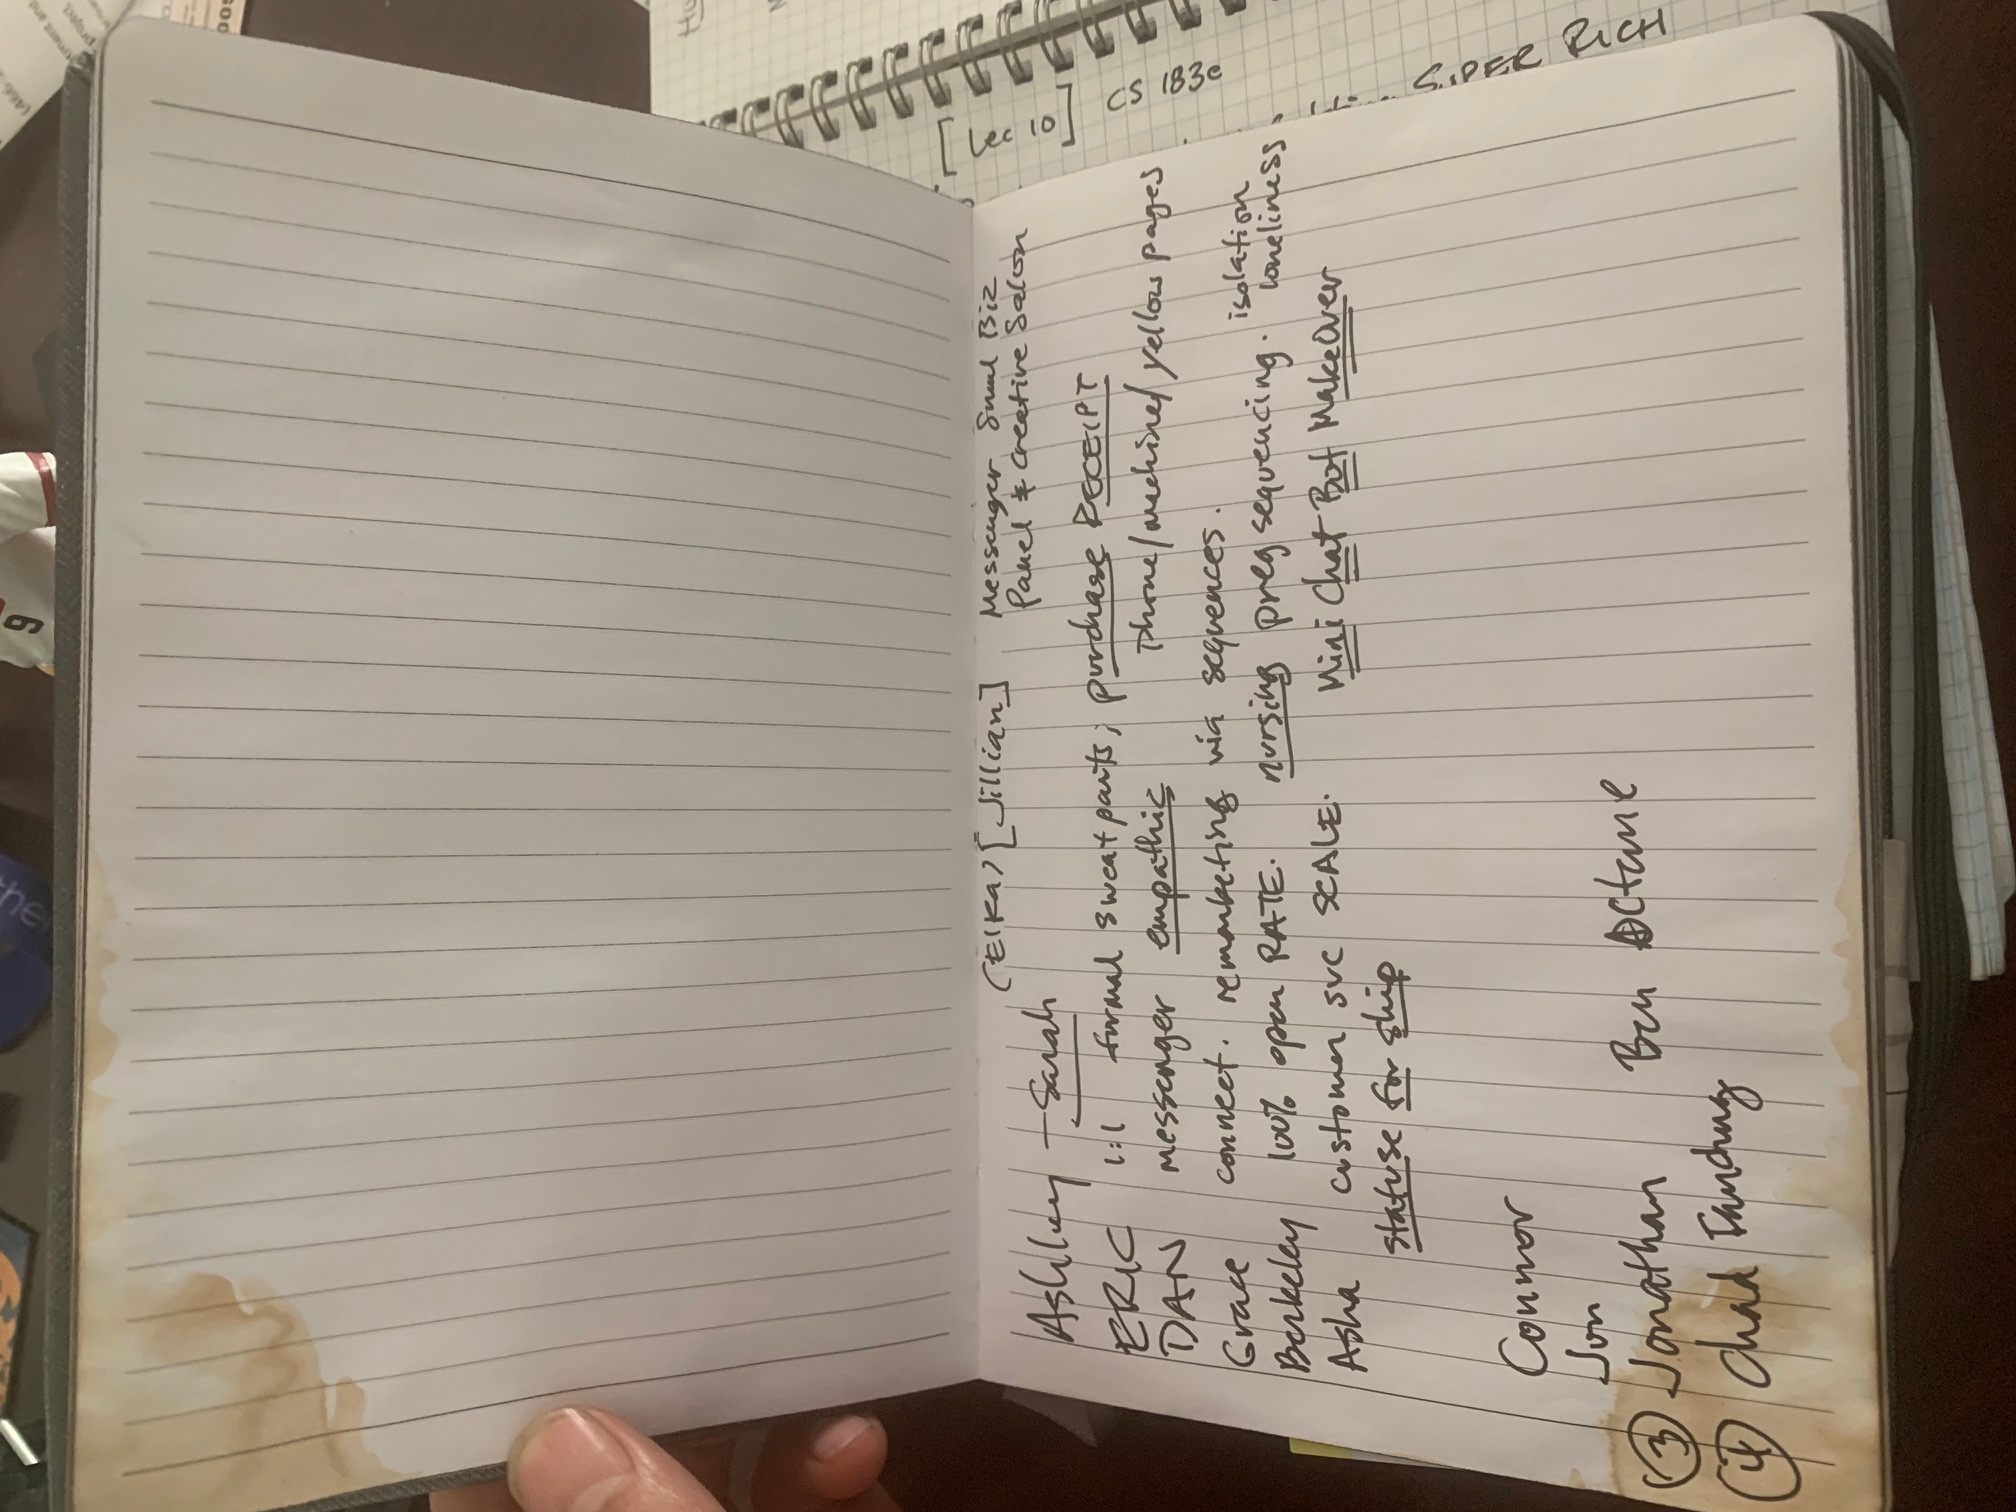 [Lec 10] CS 183c
SUPER RICH
Messenger Small Biz
Panel * Creative Salon
(Elka) [Jillian]
Ashley - Sarah
ERIC 1:1 formal sweatpants; purchase RECEIPT
DAN messenger empathic phone/machine/yellow pages
Grace connect. remarketing via sequences. isolation
Berkeley 100% open RATE. nursing preg sequencing. loneliness
Asha customer svc SCALE. Mini Chat Bot MakeOver
Statuse for ship
Connor
Jon
③ Jonathan Ben Octane
④ Chad